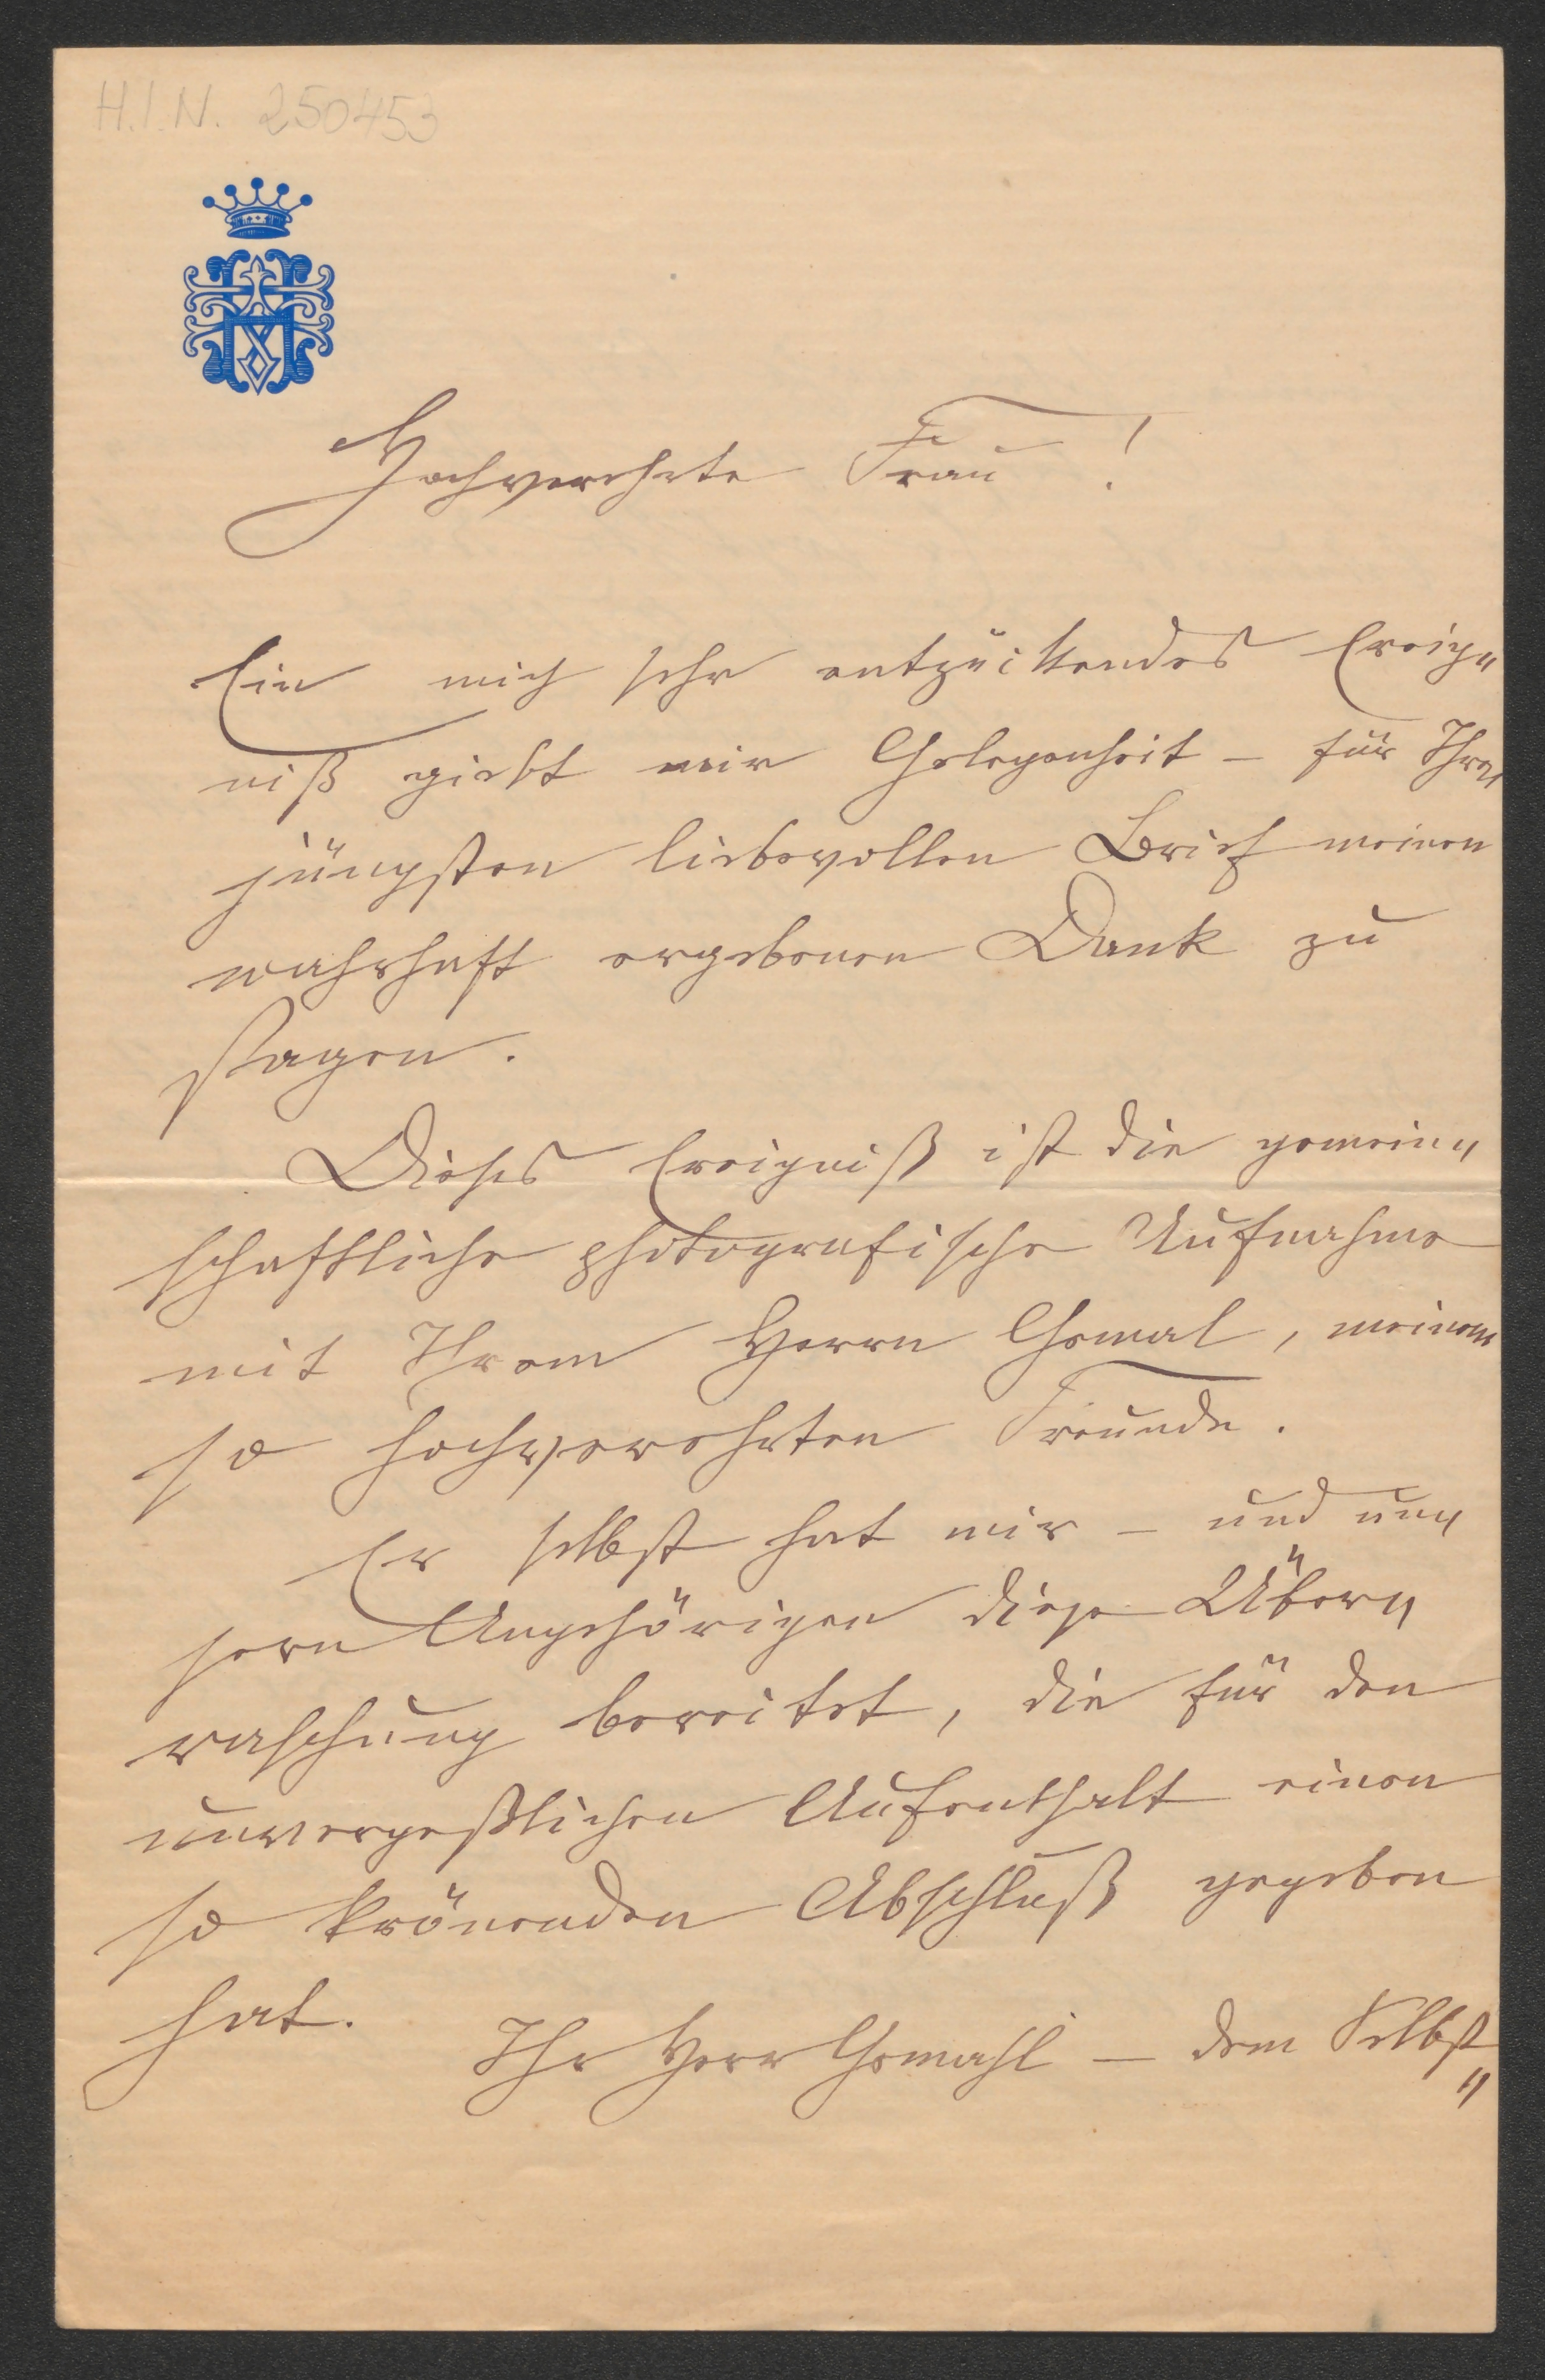 H.I.N. 250453
Hochverehrte Frau !
Ein mich sehr entzückendes Ereig„
niß giebt mir Gelegenheit – für Ihren
jüngsten liebevollen Brief meinen
wahrhaft ergebenen Dank zu
sagen.
Dieses Ereigniß ist die gemein„
schaftliche photografische Aufnahme
mit Ihrem Herrn Gemal, meinem
so hochverehrten Freunde.
Er selbst hat mir – und un„
sern Angehörigen diese Über„
raschung bereitet, die für den
unvergeßlichen Aufenthalt einen
so krönenden Abschluß gegeben
hat.
Ihr Herr Gemahl – dem Selbst„